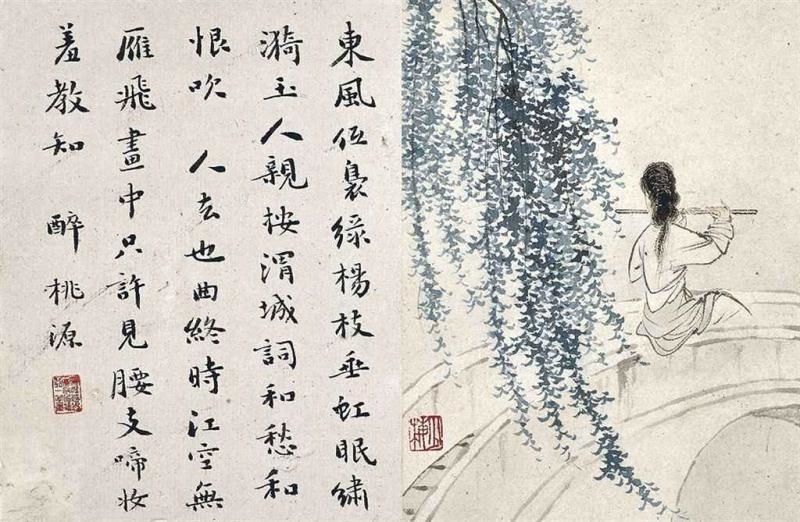 東風低裊綠楊枝垂虹眠繡
漪玉人親按渭城詞和愁和
恨吹 人去也曲終時江空無
雁飛畫中只許見腰支啼妝
羞教知 醉桃源